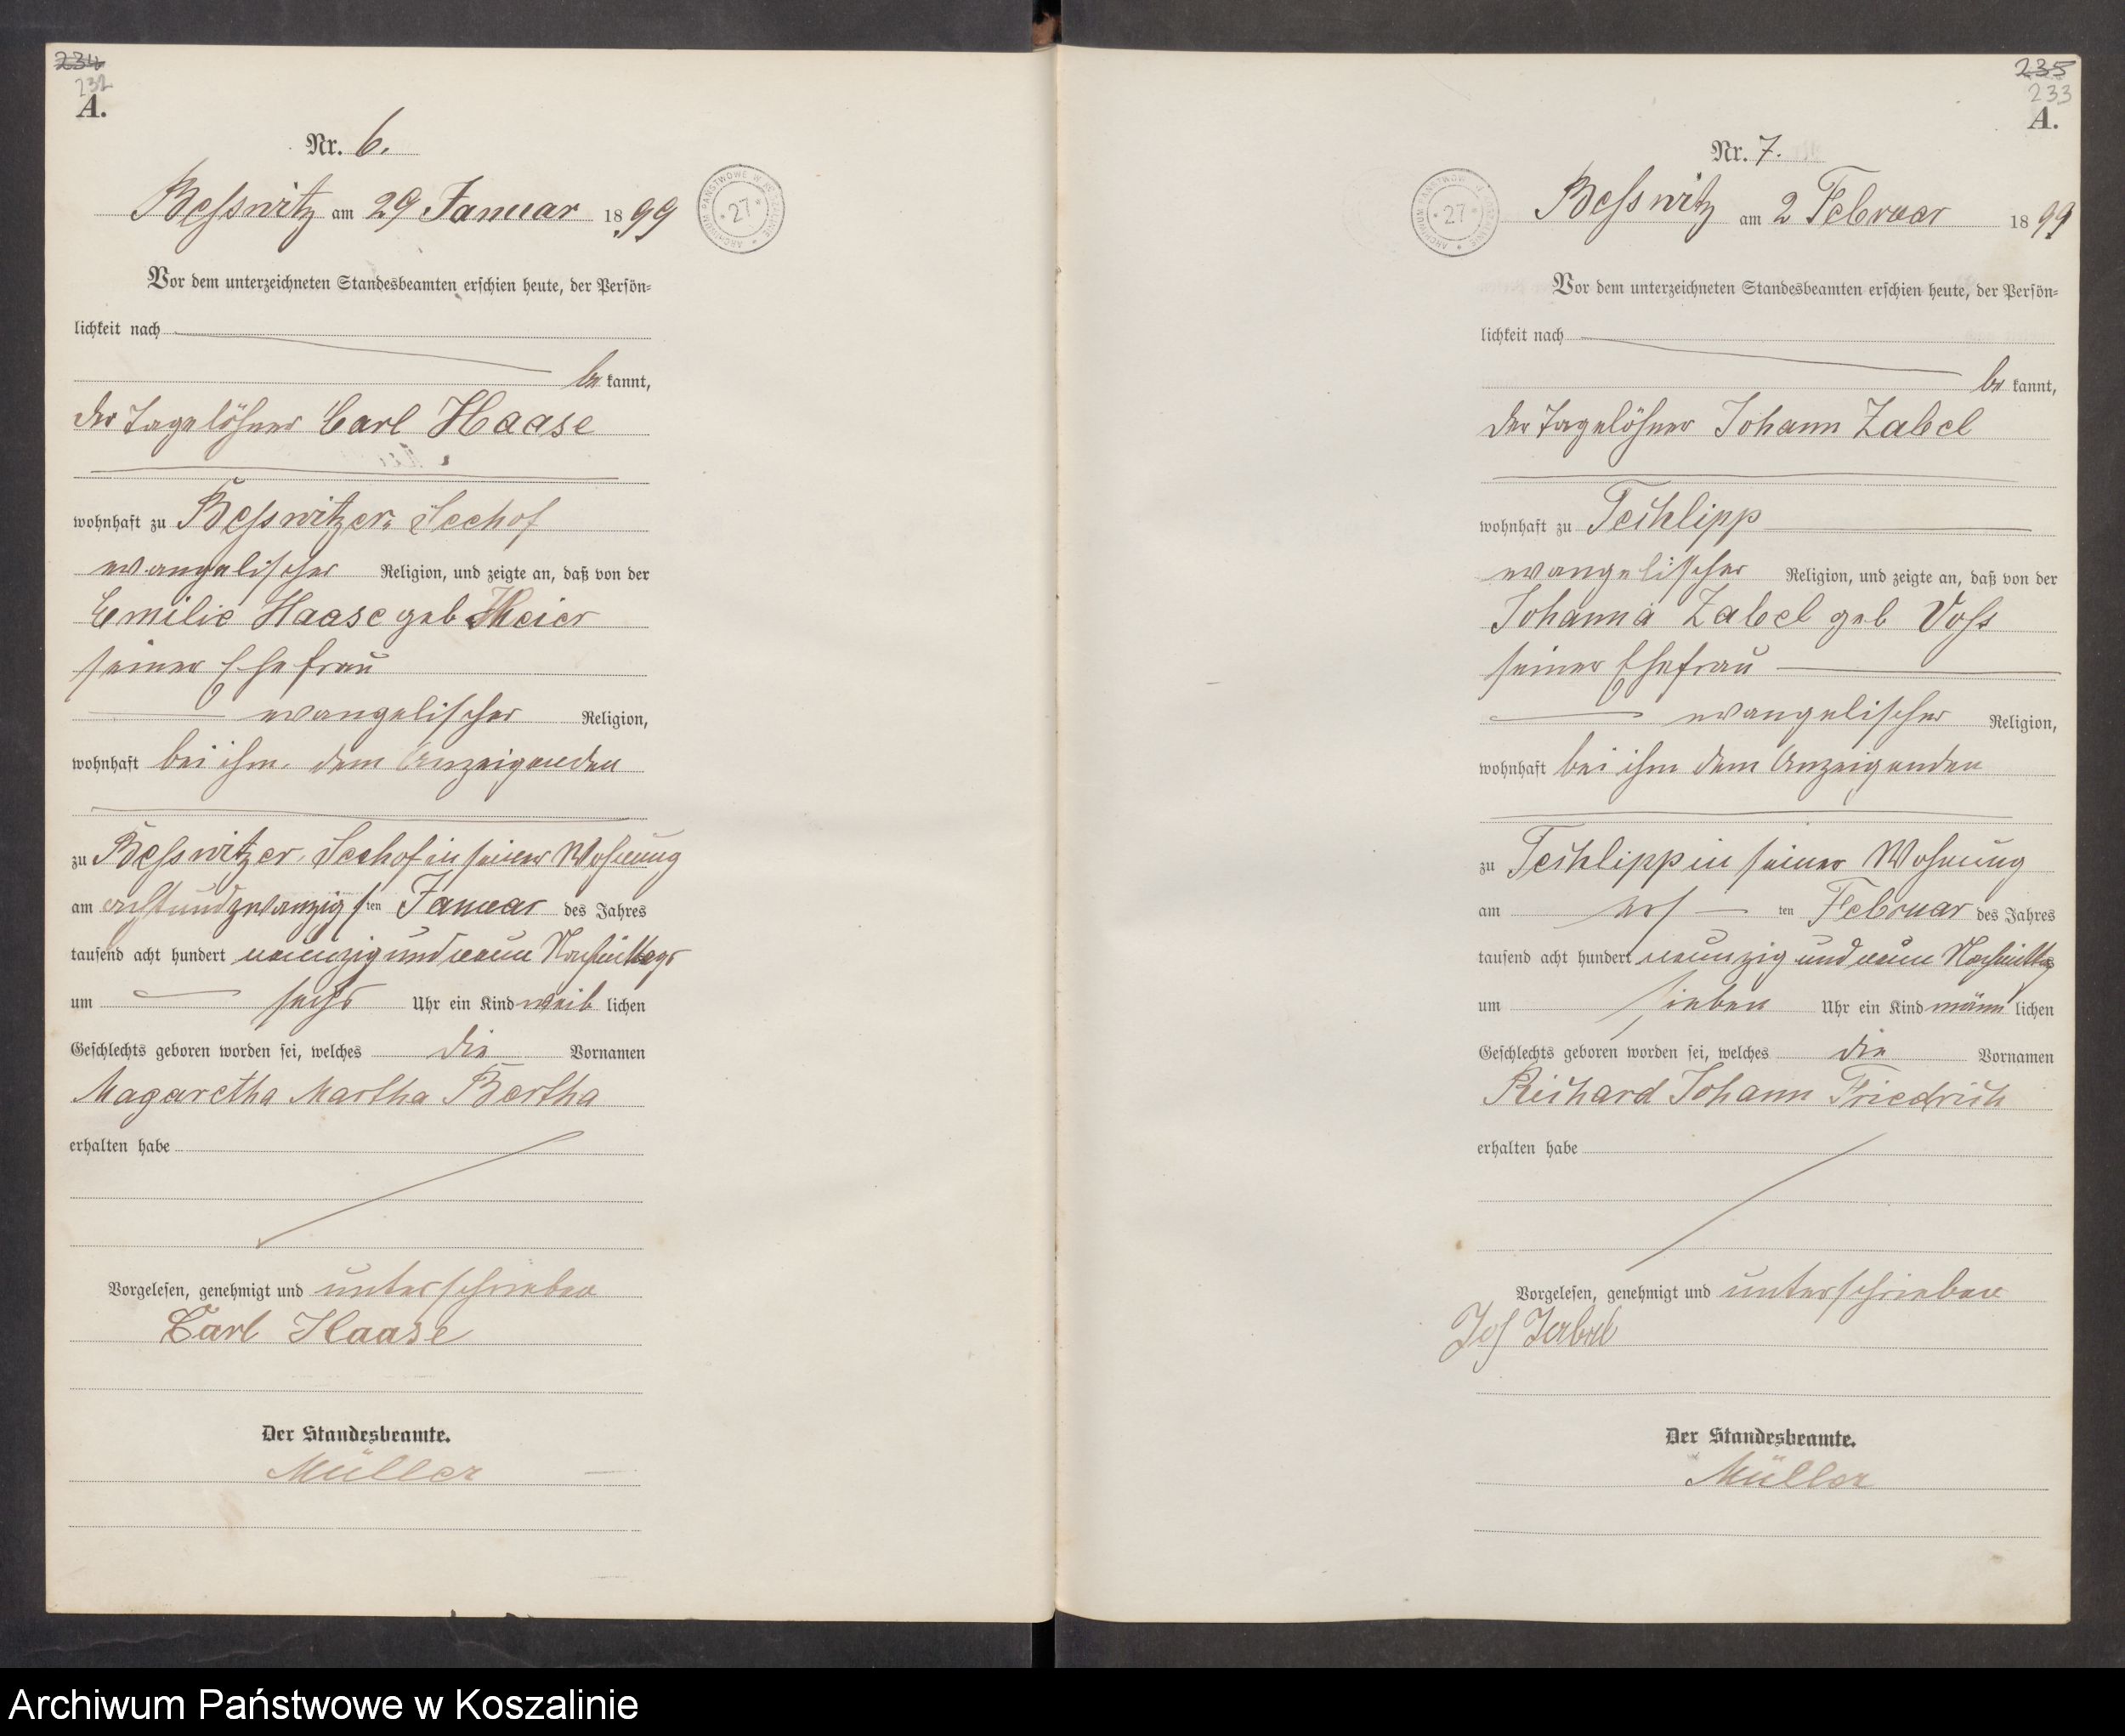 234
232
A.
Nr. 6.
Beßwitz am 29 Januar 1899
ARCHIWUM PAŃSTWOWE W KOSZALINIE * 27 *
Vor dem unterzeichneten Standesbeamten erschien heute, der Persön=
lichkeit nach
be kannt,
der Tagelöhner Carl Haase
wohnhaft zu Beßwitzer Seehof
evangelischer Religion, und zeigte an, daß von der
Emilie Haase geb Meier
seiner Ehefrau
evangelischer Religion,
wohnhaft bei ihm dem Anzeigenden
zu Beßwitzer Seehof in seiner Wohnung
am achtundzwanzigsten Januar des Jahres
tausend acht hundert neunzig und neun Nachmittags
um sechs Uhr ein Kind weib lichen
Geschlechts geboren worden sei, welches die Vornamen
Magaretha Martha Bertha
erhalten habe
Vorgelesen, genehmigt und unterschrieben
Carl Haase
Der Standesbeamte.
Müller
235
233
A.
Nr. 7.
ARCHIWUM PAŃSTWOWE W KOSZALINIE * 27 *
Beßwitz am 2 Februar 1899
Vor dem unterzeichneten Standesbeamten erschien heute, der Persön=
lichkeit nach
be kannt,
der Tagelöhner Johann Zabel
wohnhaft zu Techlipp
evangelischer Religion, und zeigte an, daß von der
Johanna Zabel geb Voß
seiner Ehefrau
evangelischer Religion,
wohnhaft bei ihm dem Anzeigenden
zu Techlipp in seiner Wohnung
am ers ten Februar des Jahres
tausend acht hundert neunzig und neun Nachmittag
um sieben Uhr ein Kind männ lichen
Geschlechts geboren worden sei, welches die Vornamen
Richard Johann Friedrich
erhalten habe
Vorgelesen, genehmigt und unterschrieben
Joh Zabel
Der Standesbeamte.
Müller
Archiwum Państwowe w Koszalinie